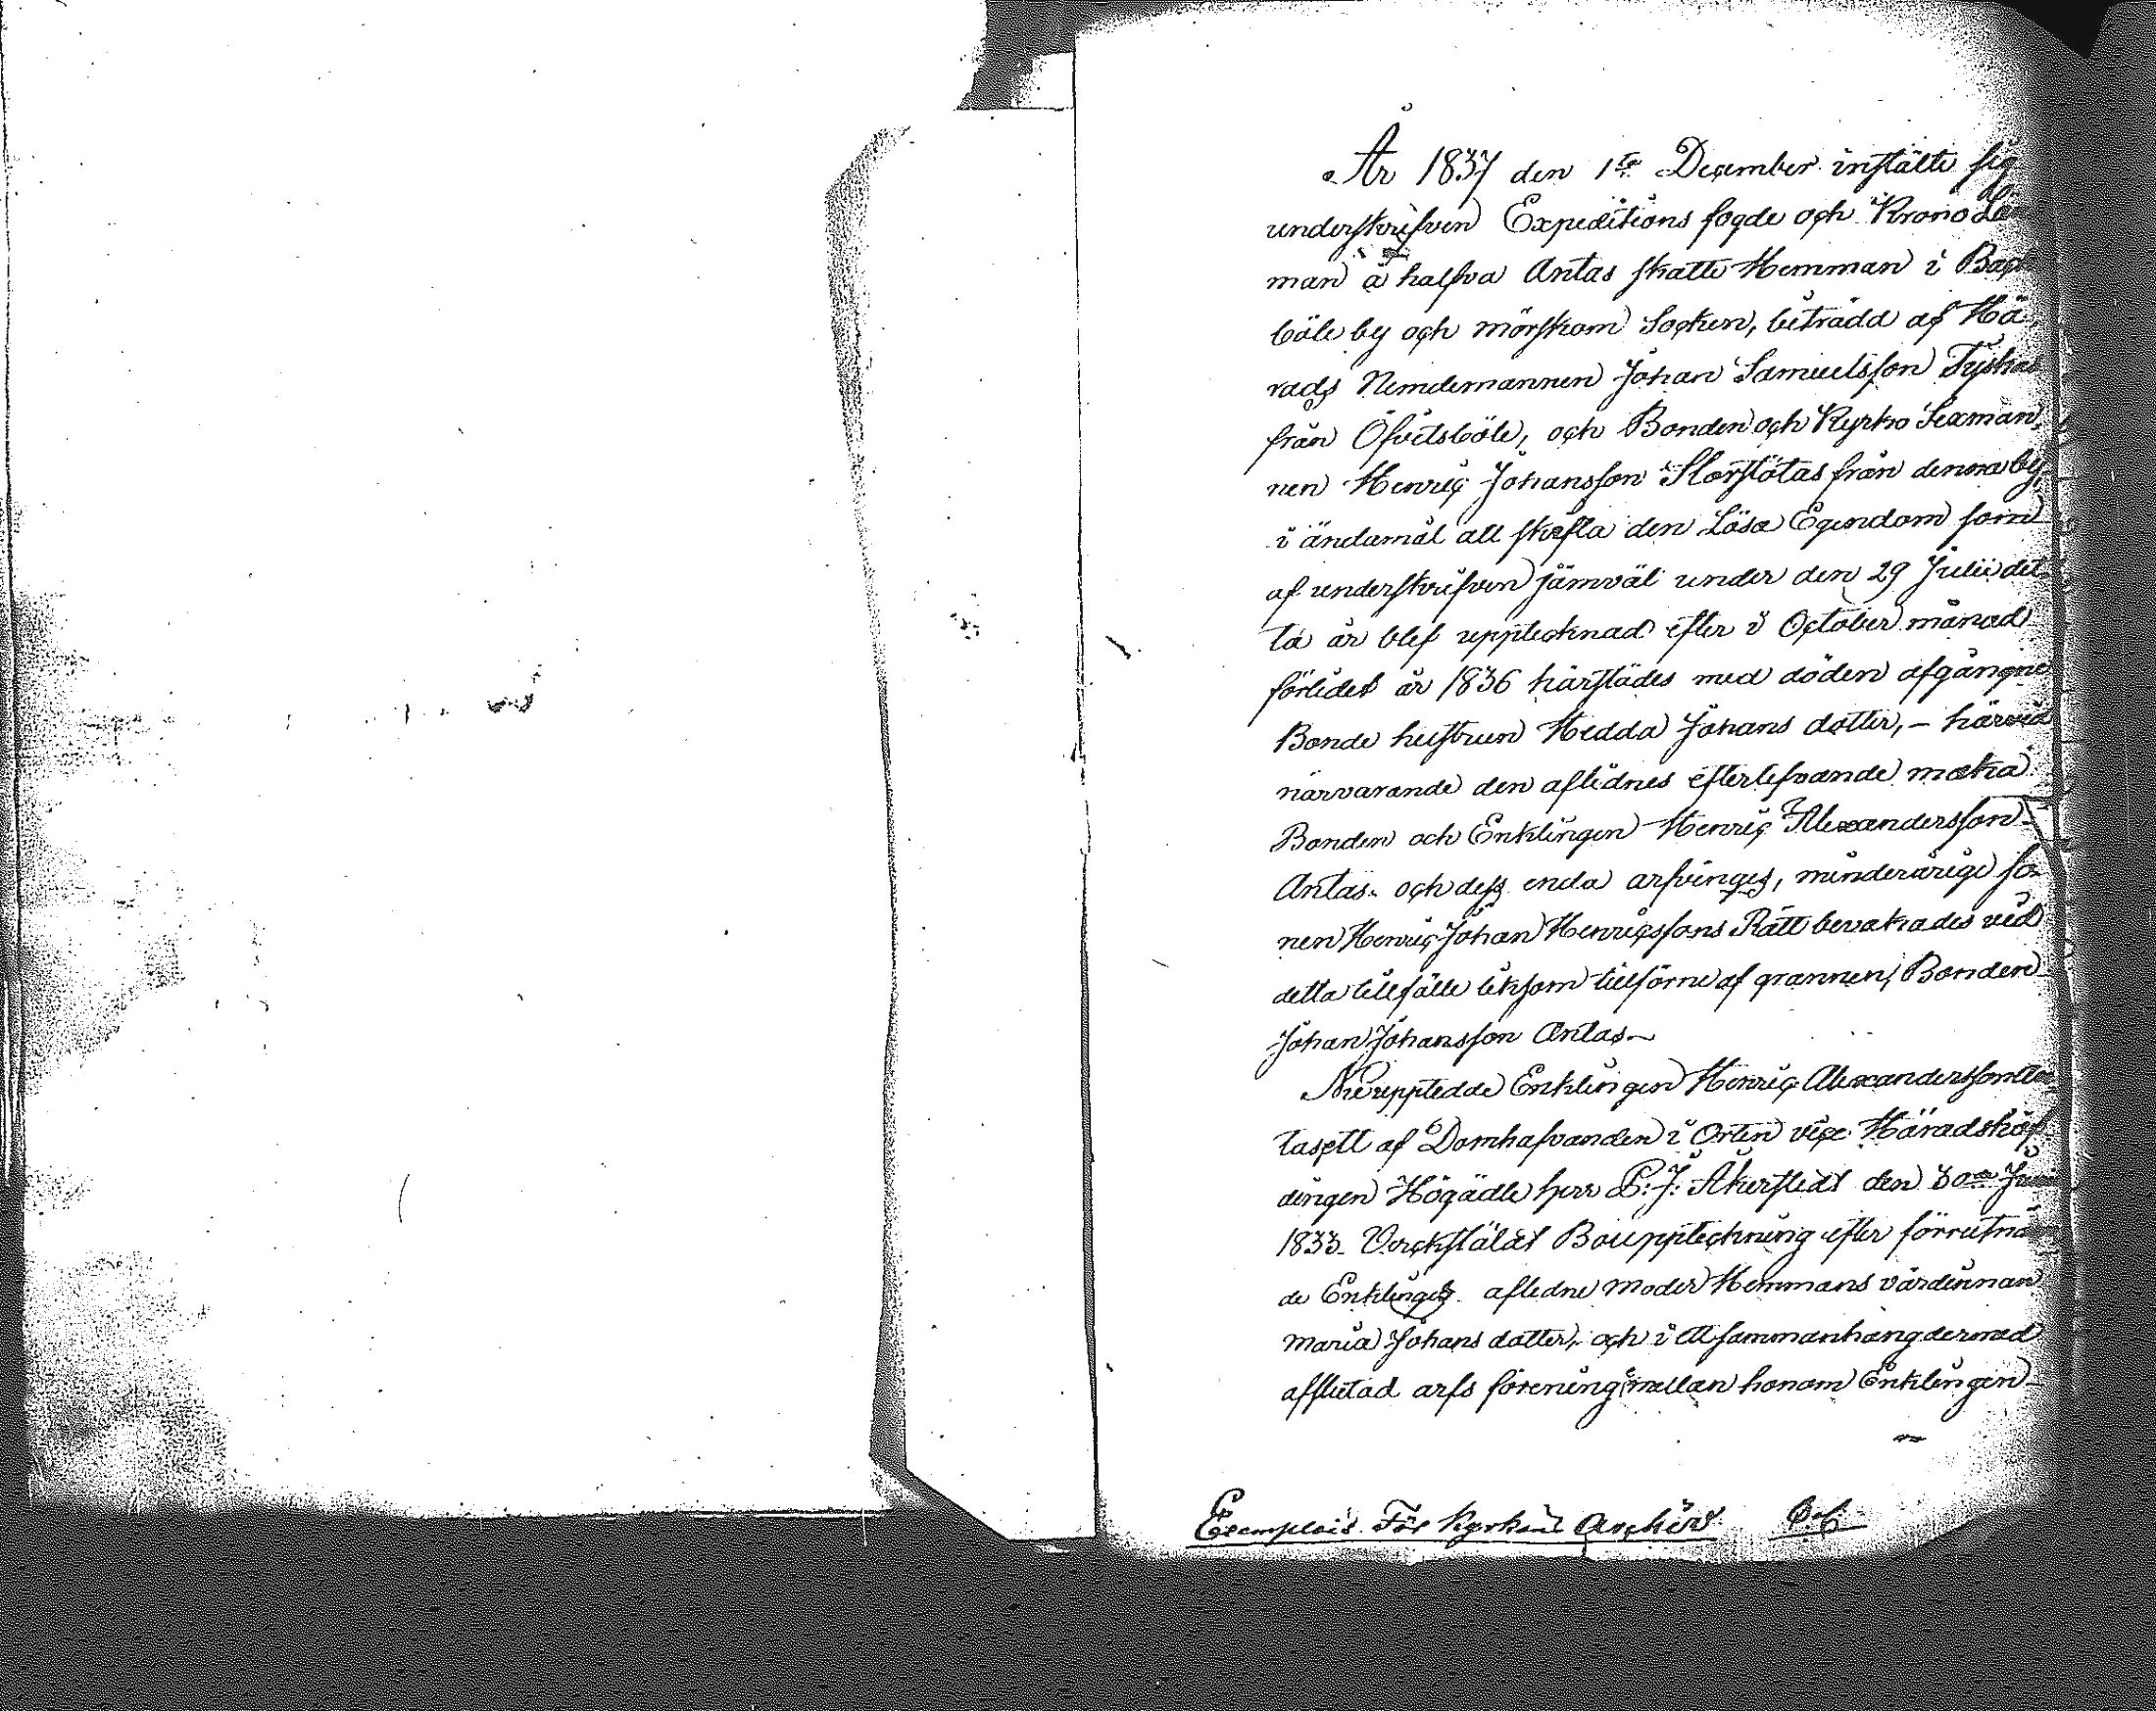 År 1837 den 1ste December instälte sig
underskrifven Expeditions fogde och Krono Läns
man å halfva Antas skatte Hemman i Back
böle by och Mörskom Socken, biträdd af Hä
rads Nemdemannen Johan Samuelsson Tyskas
från Öfvitsböle, och Bonden och Kyrko Sexman
nen Henric Johansson Storstötas från denna by,
i ändamål att skifta den Lösa Egendom som
af underskrifven jämväl under den 29 Julii det
ta år blef upptecknad efter i October månad
förledet år 1836 härstädes med döden afgångne
Bonde hustrun Hedda Johans dotter, – härvid
närvarande den aflidnes efterlefvande maka
Bonden och Enklingen Henric Alexandersson
Antas. och dess enda arfvinges, minderårige so
nen Henric Johan Henricssons Rätt bevakades vid
detta tillfälle liksom tillförne af grannen, Bonden
Johan Johansson Antas.–
Nu upptedde Enklingen Henric Alexandersson An
tas ett af Domhafvanden i Orten vice Häradshöf
dingen Högädle herr P: J: Åkerstedt den 30de Junii
1833 Verckstäldt Bouppteckning efter förrutnäm
de Enklinges afledne Moder Hemmans värdinnan
Maria Johans dotter, och i ett sammanhang dermed
afslutad arfs förening emellan honom Enklingen
Exemplair För Kyrkans Archivé